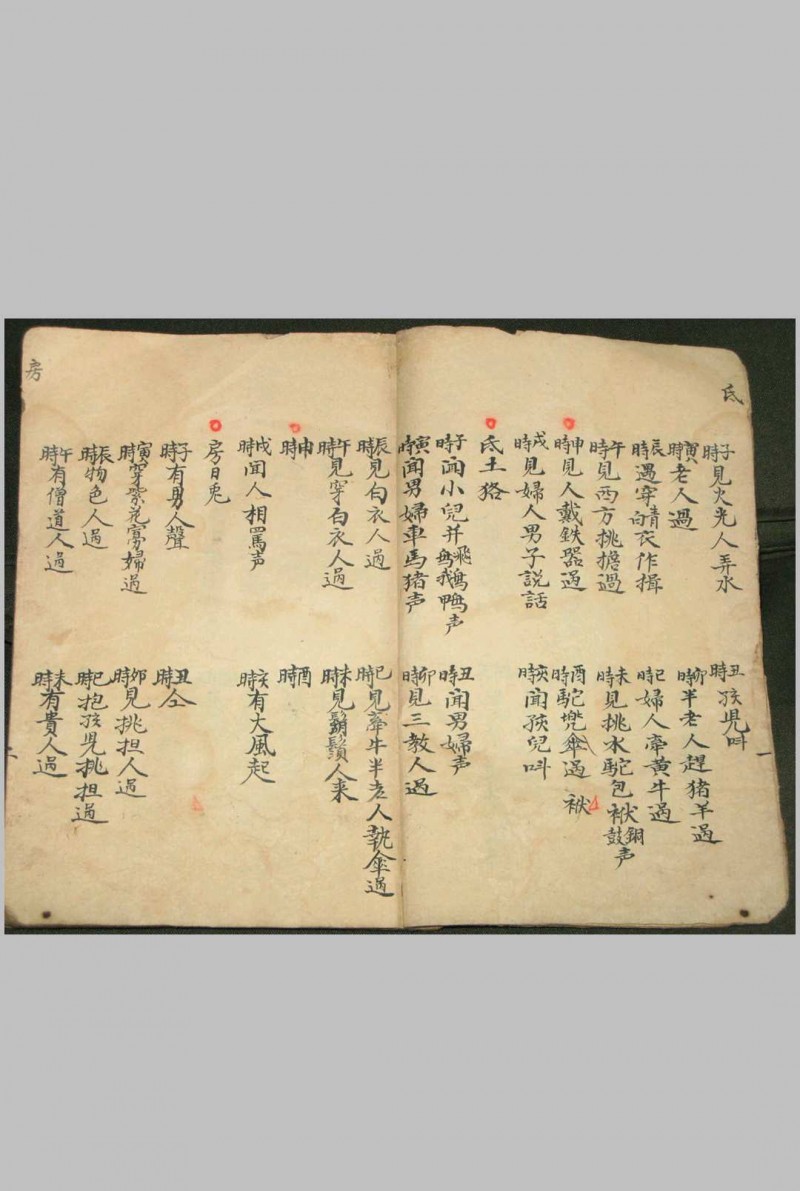 氐
子時見火光人弄水
丑時孩児呌
寅時老人過
卯時半老人趕猪羊過
辰時遇穿青衣白作揖
巳時婦人牽黄牛過
午時見西方挑擔過
未時見挑水駝包袱銅鼓声
申時見人戴鉄器過
酉時駝兠傘過 袱
戌時見婦人男子説話
亥時聞孩兒呌
氐土狢
子時聞小兒并飛鵝鴨声
丑時聞男婦声
寅時聞男婦車馬猪声
卯時見三教人過
辰時見白衣人過
巳時見牽牛半老人執傘過
午時見穿白衣人過
未時見鬍鬚人来
申時
酉時
戌時聞人相罵声
亥時有大風起
房日兎
子時有男人聲
丑時仝
寅時穿紫花寡婦過
卯時見挑担人過
辰時物色人過
巳時抱孩児挑担過
午時有僧道人過
未時有貴人過
房